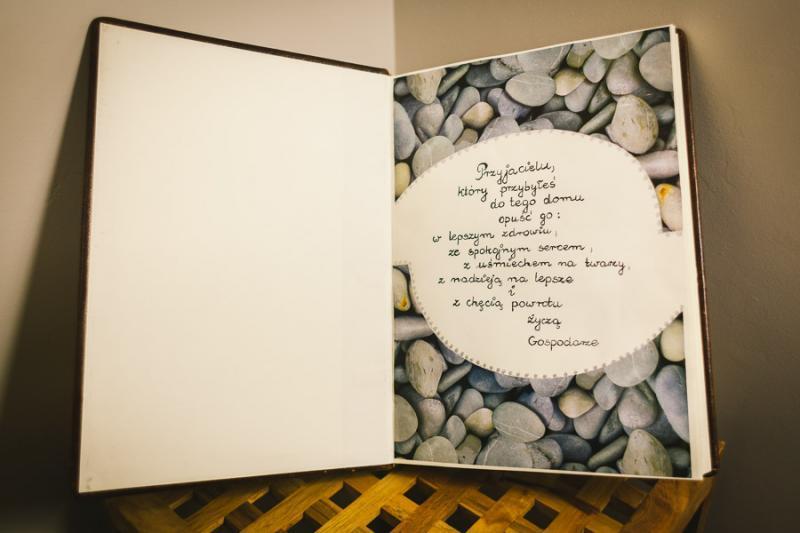 Przyjacielu,
który przybyłeś
do tego domu
opuść go:
w lepszym zdrowiu,
ze spokojnym sercem,
z uśmiechem na twarzy,
z nadzieją na lepsze
i
z chęcią powrotu
życzą
Gospodarze